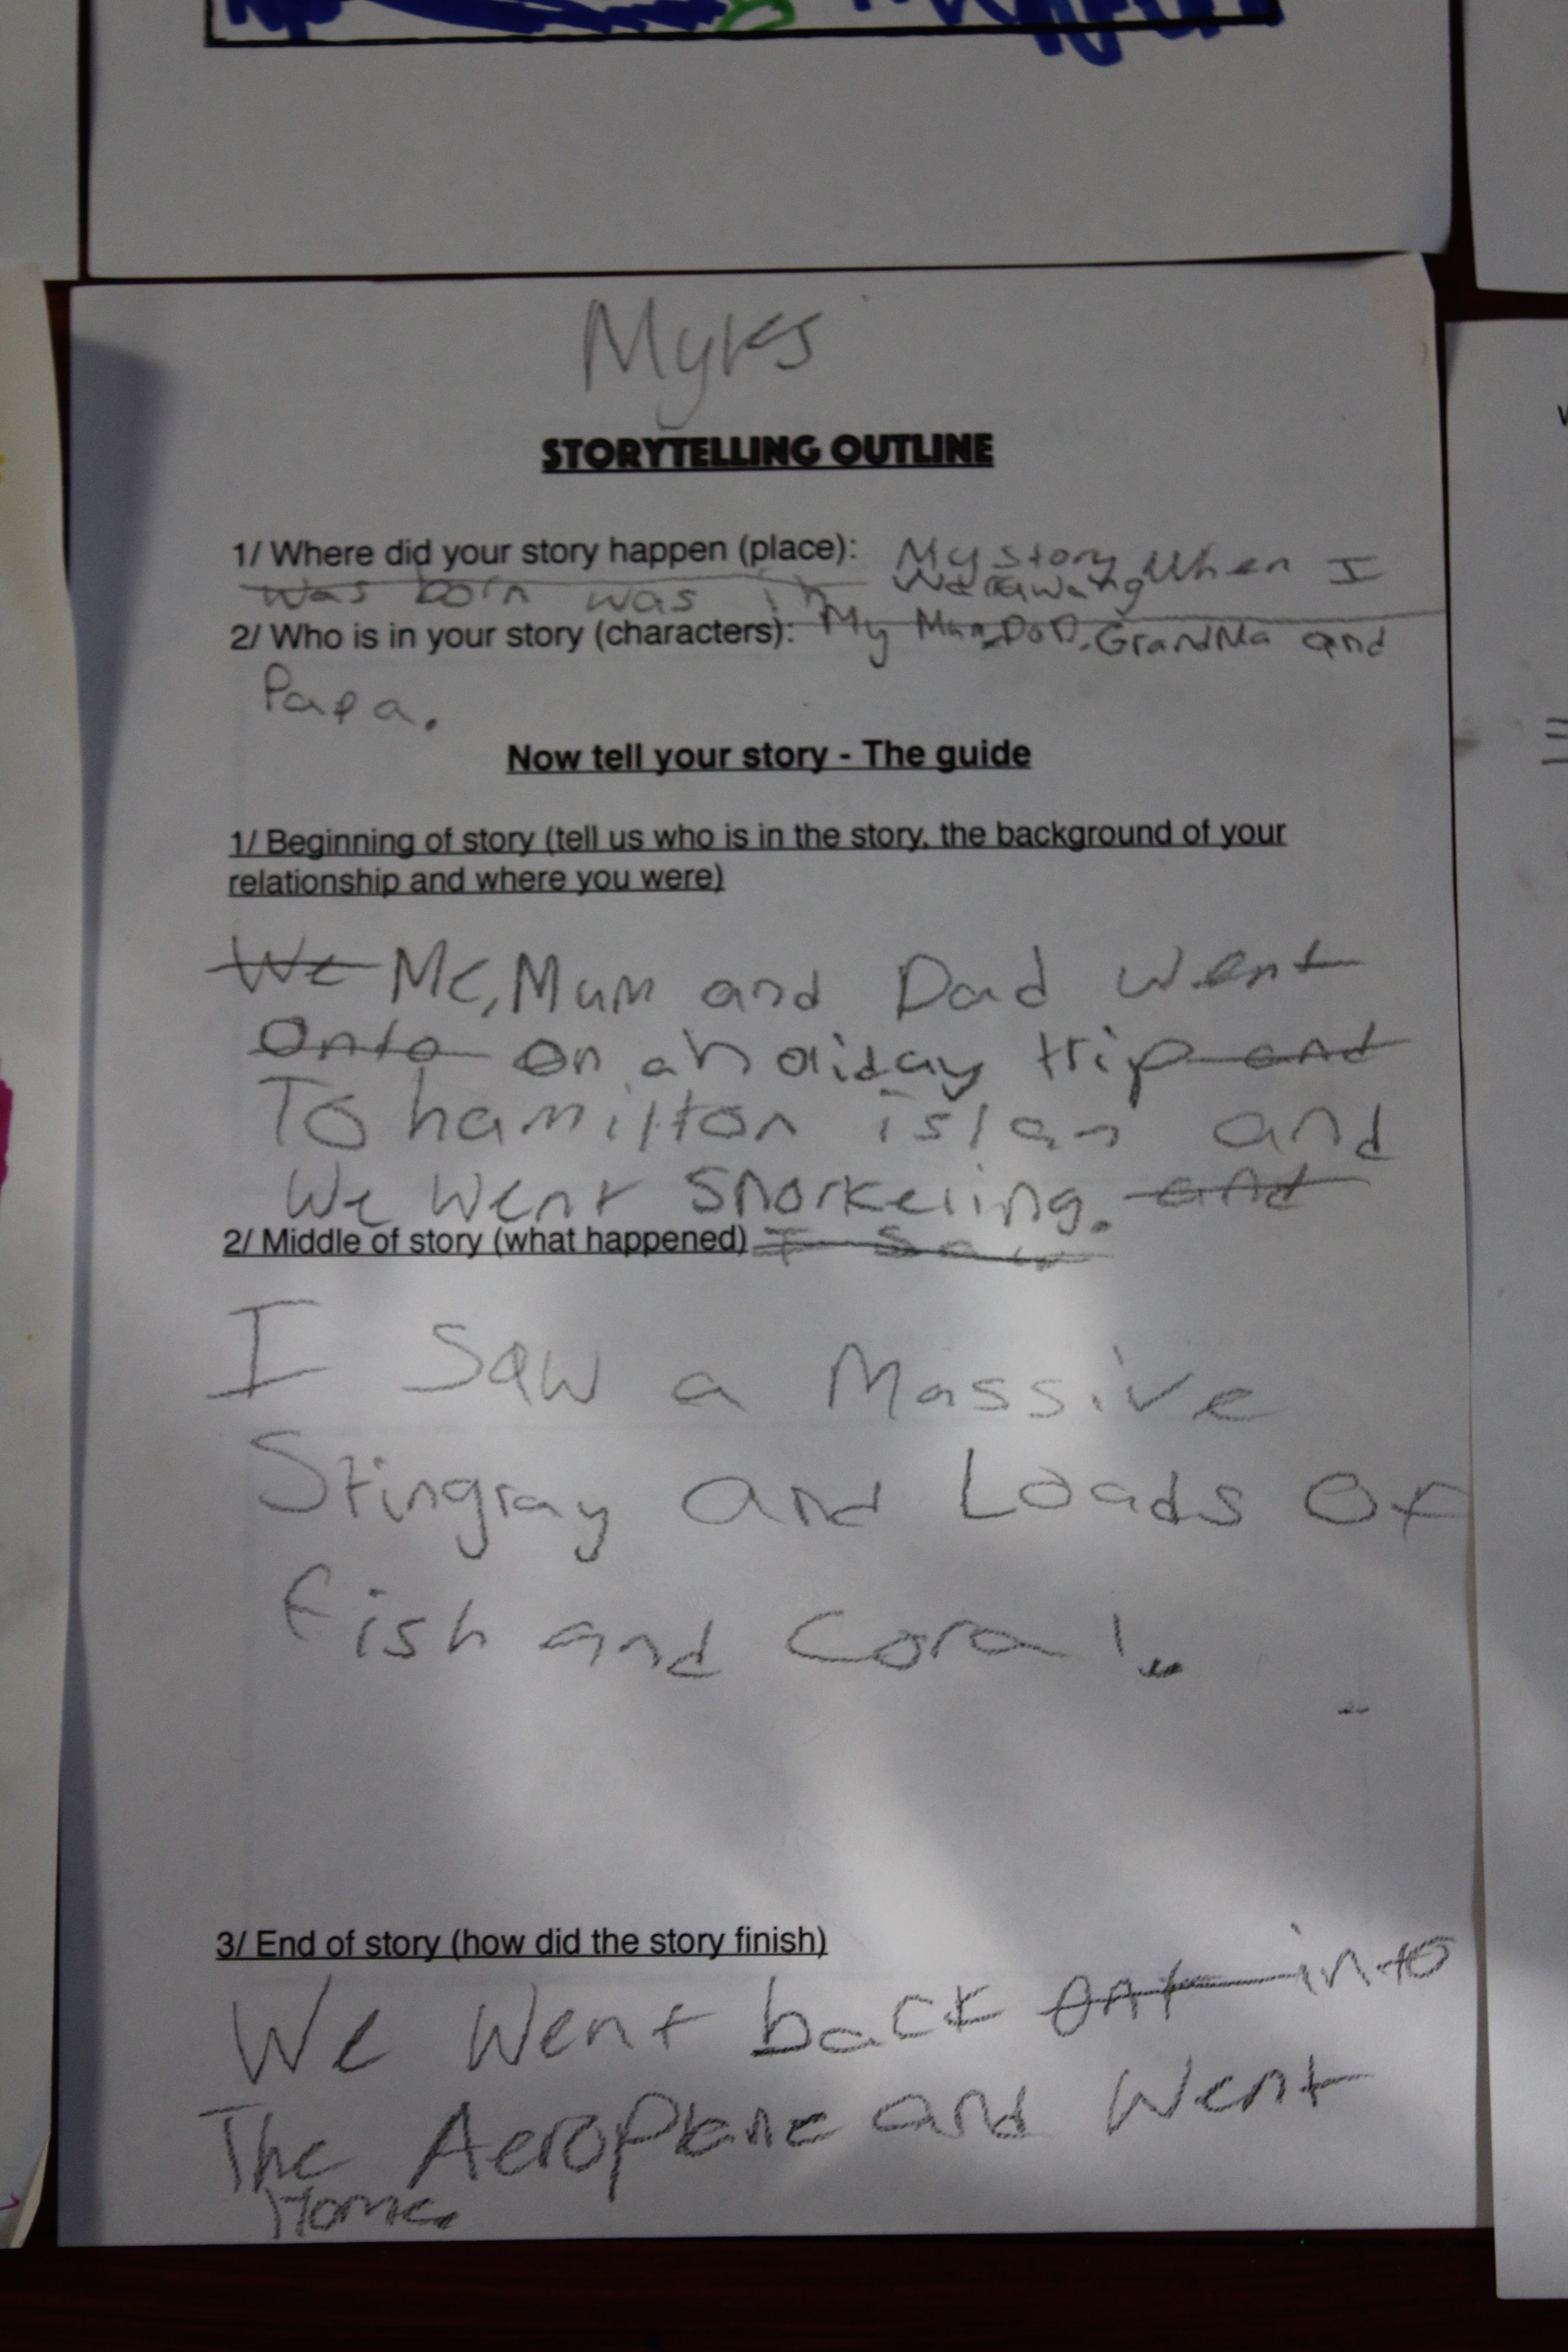 Myks
STORYTELLING OUTLINE
1/ Where did your story happen (place): My story When I
was born was in
2/ Who is in your story (characters): My Mum, DaD, GrandMa and
Papa.
Now tell your story - The guide
1/ Beginning of story (tell us who is in the story, the background of your
relationship and where you were)
We Me, Mum and Dad went
onto on a holiday trip and
To hamilton islan and
We Went Snorkeling. and
2/ Middle of story (what happened) I Saw
I Saw a Massive
Stingray and Loads of
fish and Coral.
3/ End of story (how did the story finish)
We Went back ont into
The AeroPlane and Went
Home.